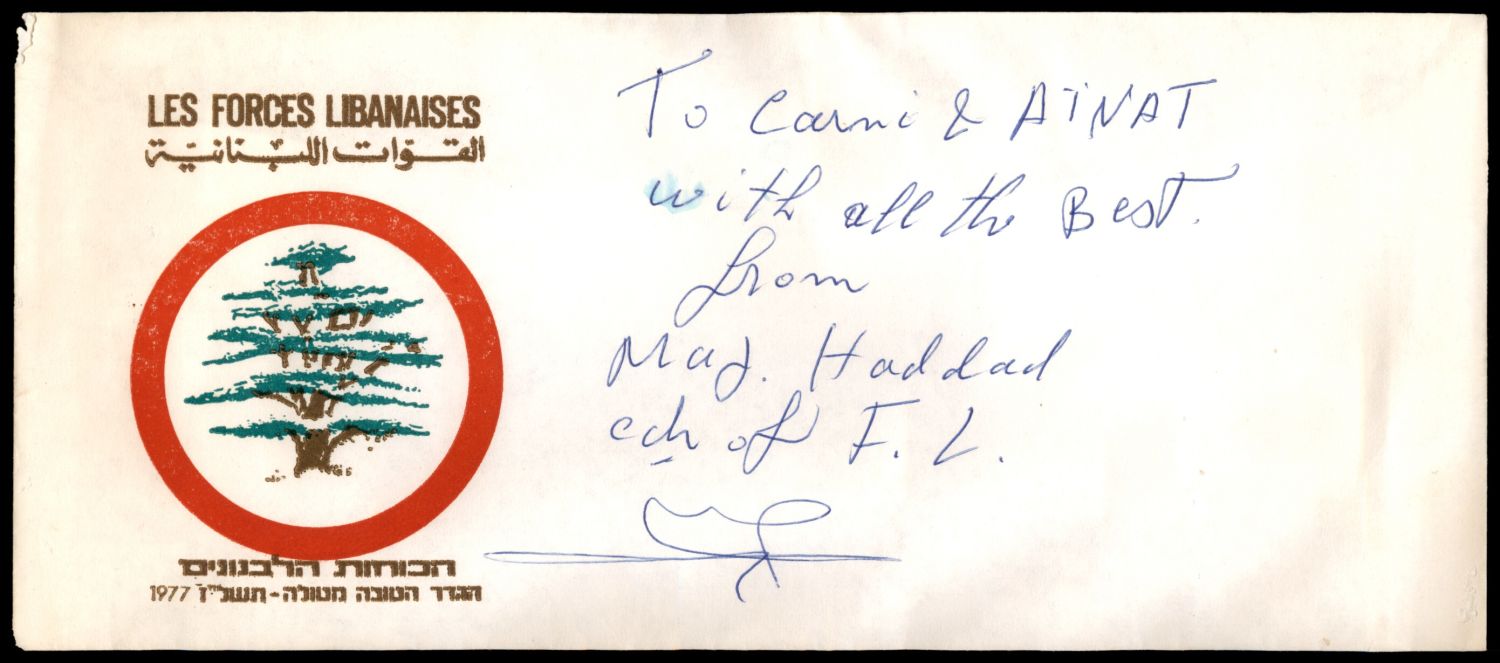 LES FORCES LIBANAISES
القوّات اللبنانيّة
הכוחות הלבנונים
הגדר הטובה מטולה - תשל"ז 1977
To Carni & AÏNAT
with all the Best.
from
Maj. Haddad
cdr of F. L.